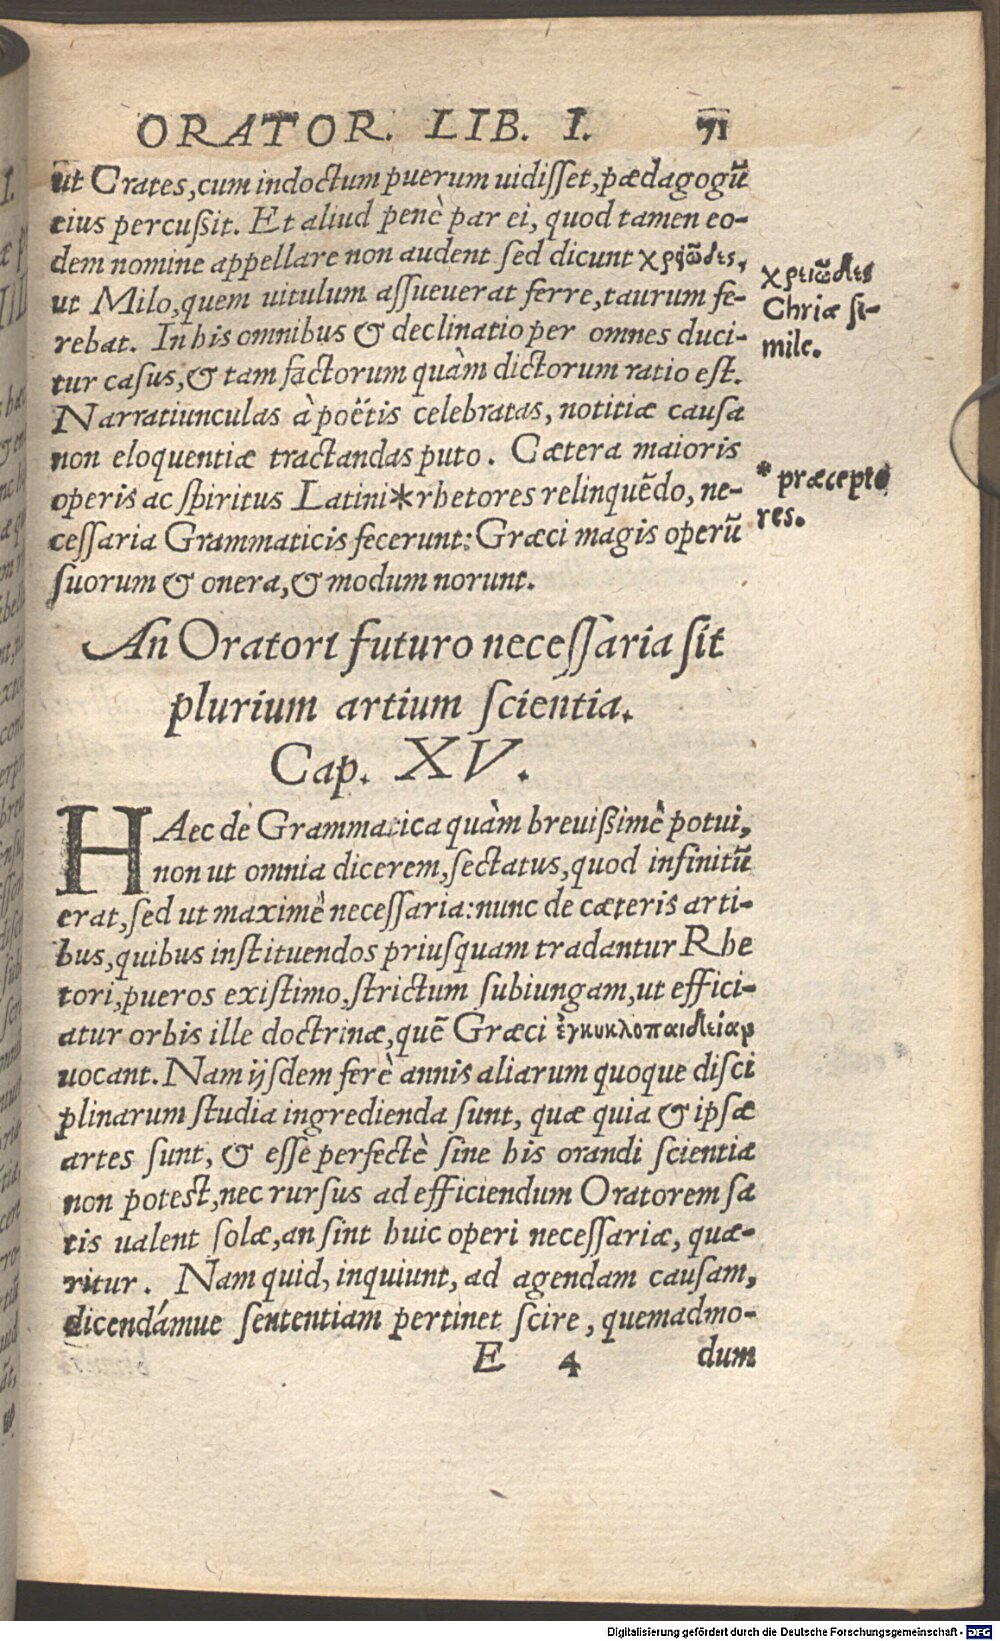 ORATOR. LIB. I. 71
ut Crates, cum indoctum puerum uidisset, pædagogũ
eius percussit. Et aliud penè par ei, quod tamen eo-
dem nomine appellare non audent sed dicunt χρειῶδες,
ut Milo, quem uitulum assueuerat ferre, taurum fe-
rebat. In his omnibus & declinatio per omnes duci-
tur casus, & tam factorum quàm dictorum ratio est.
Narratiunculas à poëtis celebratas, notitiæ causa
non eloquentiæ tractandas puto. Cætera maioris
operis ac spiritus Latini*rhetores relinquẽdo, ne-
cessaria Grammaticis fecerunt: Græci magis operũ
suorum & onera, & modum norunt.
χρειῶδες
Chriæ si-
mile.
* præcepto
res.
An Oratori futuro necessaria sit
plurium artium scientia.
Cap. XV.
HAec de Grammatica quàm breuißimè potui,
non ut omnia dicerem, sectatus, quod infinitũ
erat, sed ut maximè necessaria: nunc de cæteris arti-
bus, quibus instituendos priusquam tradantur Rhe
tori, pueros existimo, strictum subiungam, ut effici-
atur orbis ille doctrinæ, quẽ Græci ἐγκυκλοπαιδείαν
uocant. Nam ijsdem ferè annis aliarum quoque disci
plinarum studia ingredienda sunt, quæ quia & ipsæ
artes sunt, & esse perfectè sine his orandi scientiæ
non potest, nec rursus ad efficiendum Oratorem sa
tis ualent solæ, an sint huic operi necessariæ, quæ-
ritur. Nam quid, inquiunt, ad agendam causam,
dicendámue sententiam pertinet scire, quemadmo-
E 4 dum
Digitalisierung gefördert durch die Deutsche Forschungsgemeinschaft - DFG